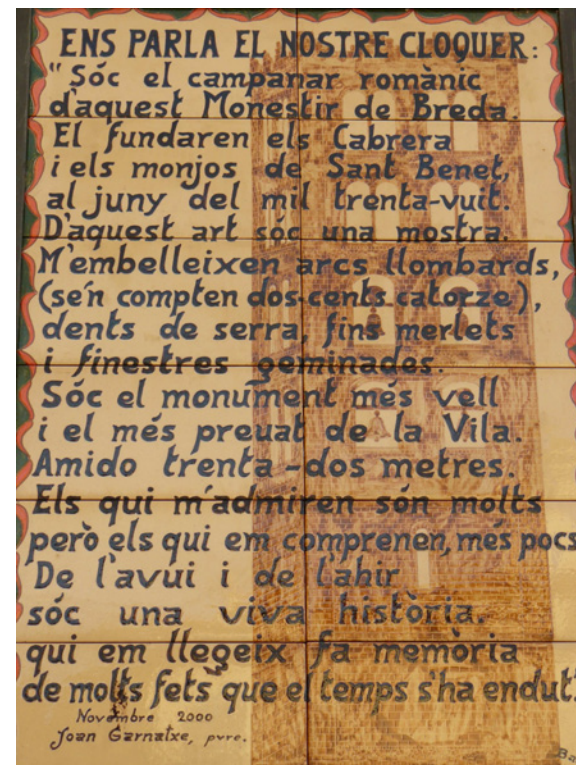 ENS PARLA EL NOSTRE CLOQUER:
"Sóc el campanar romànic
d'aquest Monestir de Breda.
El fundaren els Cabrera
i els monjos de Sant Benet,
al juny del mil trenta-vuit.
D'aquest art sóc una mostra.
M'embelleixen arcs llombards,
(se'n compten dos-cents catorze),
dents de serra, fins merlets
i finestres geminades.
Sóc el monument més vell
i el més preuat de la Vila.
Amido trenta-dos metres.
Els qui m'admiren són molts
però els qui em comprenen, més pocs
De l'avui i de l'ahir
sóc una viva història.
qui em llegeix fa memòria
de molts fets que el temps s'ha endut."
Novembre 2000
Joan Garnatxe, pvre.